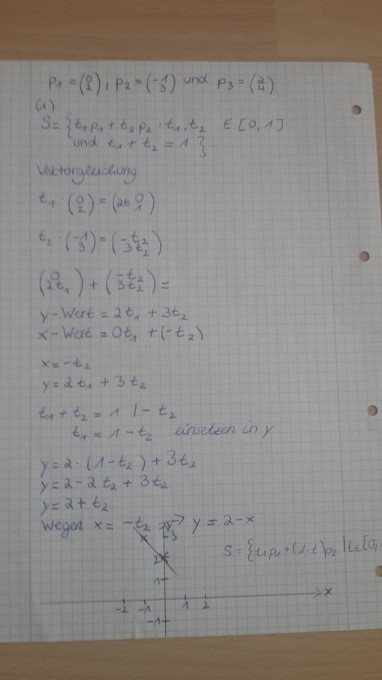 p₁ = (0 2), p₂ = (-1 3) und p₃ = (2 4)
(1)
S = { t₁p₁ + t₂p₂ : t₁, t₂ ∈ [0,1]
und t₁ + t₂ = 1 }.
Vektorgleichung
t₁ · (0 2) = (2t 0 1)
t₂ · (-1 3) = (-t₂ 3t₂)
(0 2t₁) + (-t₂ 3t₂) =
y-Wert = 2t₁ + 3t₂
x-Wert = 0t₁ + (-t₂)
x = -t₂
y = 2t₁ + 3t₂
t₁ + t₂ = 1 | - t₂
t₁ = 1 - t₂ einsetzen in y
y = 2 · (1 - t₂) + 3t₂
y = 2 - 2t₂ + 3t₂
y = 2 + t₂
Wegen x = -t₂ → y = 2 - x
3
2
S = {
1
-2 -1 1 2 x
-1